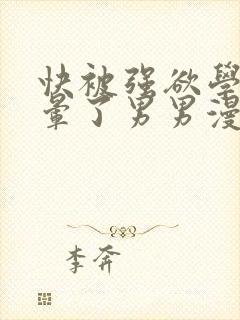 快被强欲學
暈了男男漫
李奔